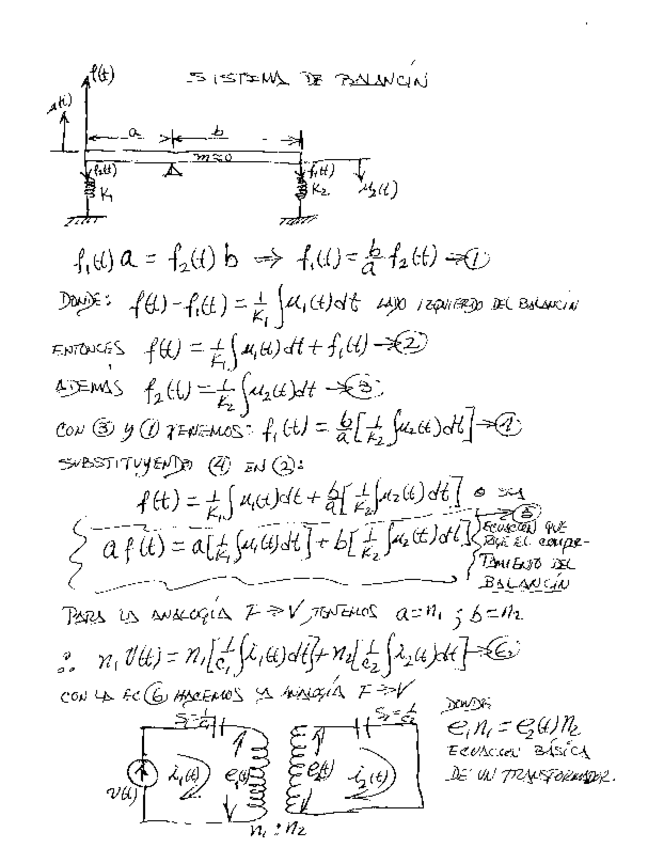 SISTEMA DE BALANCÍN
f(t)
a b
m≈0
f₂(t) f₁(t)
K₁ K₂ μ₂(t)
f₁(t) a = f₂(t) b ⇒ f₁(t) = b/a f₂(t) → ①
DONDE: f(t) - f₁(t) = 1/K₁ ∫μ₁(t)dt LADO IZQUIERDO DEL BALANCÍN
ENTONCES f(t) = 1/K₁ ∫μ₁(t)dt + f₁(t) → ②
ADEMÁS f₂(t) = 1/K₂ ∫μ₂(t)dt → ③
CON ③ Y ① TENEMOS: f₁(t) = b/a [1/K₂ ∫μ₂(t)dt] → ④
SUBSTITUYENDO (4) EN (2):
f(t) = 1/K₁ ∫μ₁(t)dt + b/a [1/K₂ ∫μ₂(t)dt] o sea
a f(t) = a[1/K₁ ∫μ₁(t)dt] + b[1/K₂ ∫μ₂(t)dt] → ⑤
ECUACIÓN QUE
RIGE EL COMPOR-
TAMIENTO DEL
BALANCÍN
PARA LA ANALOGÍA F ⇒ V, TENEMOS a = n₁ ; b = n₂
∴ n₁ V(t) = n₁[1/c₁ ∫i₁(t)dt] + n₂[1/c₂ ∫i₂(t)dt] → ⑥
CON LA EC ⑥ HACEMOS LA ANALOGÍA F ⇒ V
S₁ = 1/c₁ S₂ = 1/c₂
V(t) i₁(t) e₁(t) e₂(t) i₂(t)
n₁ : n₂
DONDE:
e₁n₁ = e₂(t)n₂
ECUACION BÁSICA
DE UN TRANSFORMADOR.